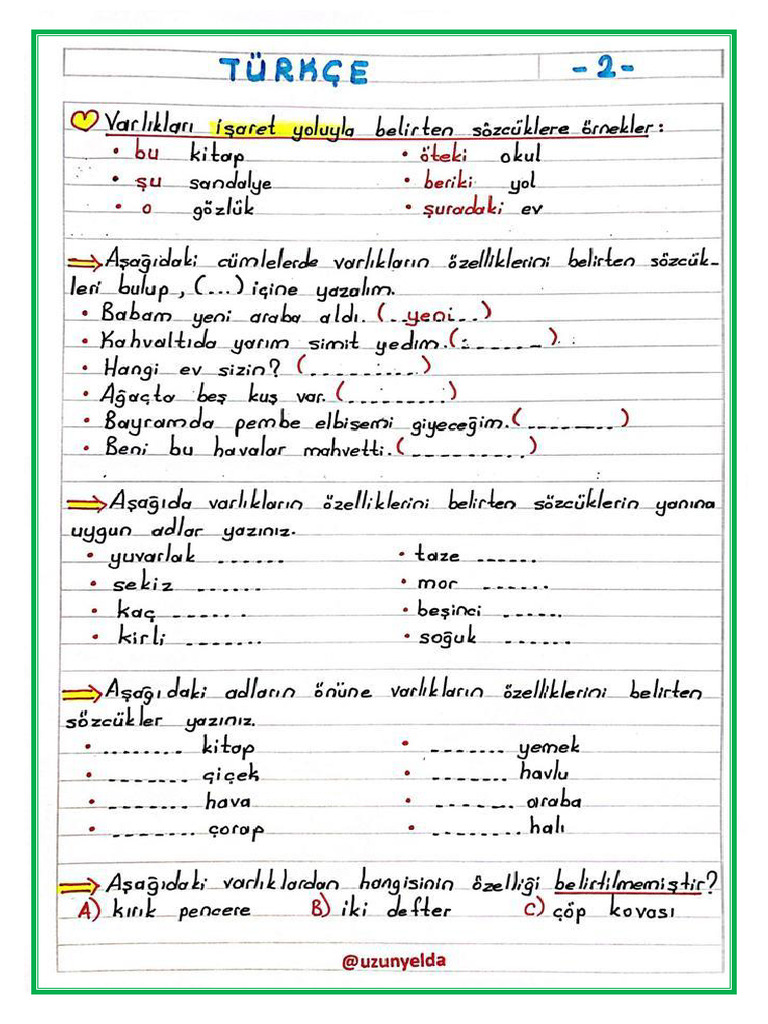 TÜRKÇE -2-
Varlıkları işaret yoluyla belirten sözcüklere örnekler:
• bu kitap • öteki okul
• şu sandalye • beriki yol
• o gözlük • şuradaki ev
Aşağıdaki cümlelerde varlıkların özelliklerini belirten sözcük-
leri bulup, (...) içine yazalım.
• Babam yeni araba aldı. (..yeni...)
• Kahvaltıda yarım simit yedim.(.......)
• Hangi ev sizin? (.......)
• Ağaçta beş kuş var. (.......)
• Bayramda pembe elbisemi giyeceğim.(........)
• Beni bu havalar mahvetti.(.........)
Aşağıda varlıkların özelliklerini belirten sözcüklerin yanına
uygun adlar yazınız.
• yuvarlak ...... • taze ......
• sekiz ...... • mor ......
• kaç ....... • beşinci ......
• kirli ....... • soğuk ......
Aşağıdaki adların önüne varlıkların özelliklerini belirten
sözcükler yazınız.
• ........ kitap • ....... yemek
• ........ çiçek • ....... havlu
• ........ hava • ....... araba
• ........ çorap • ....... halı
Aşağıdaki varlıklardan hangisinin özelliği belirtilmemiştir?
A) kırık pencere B) iki defter C) çöp kovası
@uzunyelda